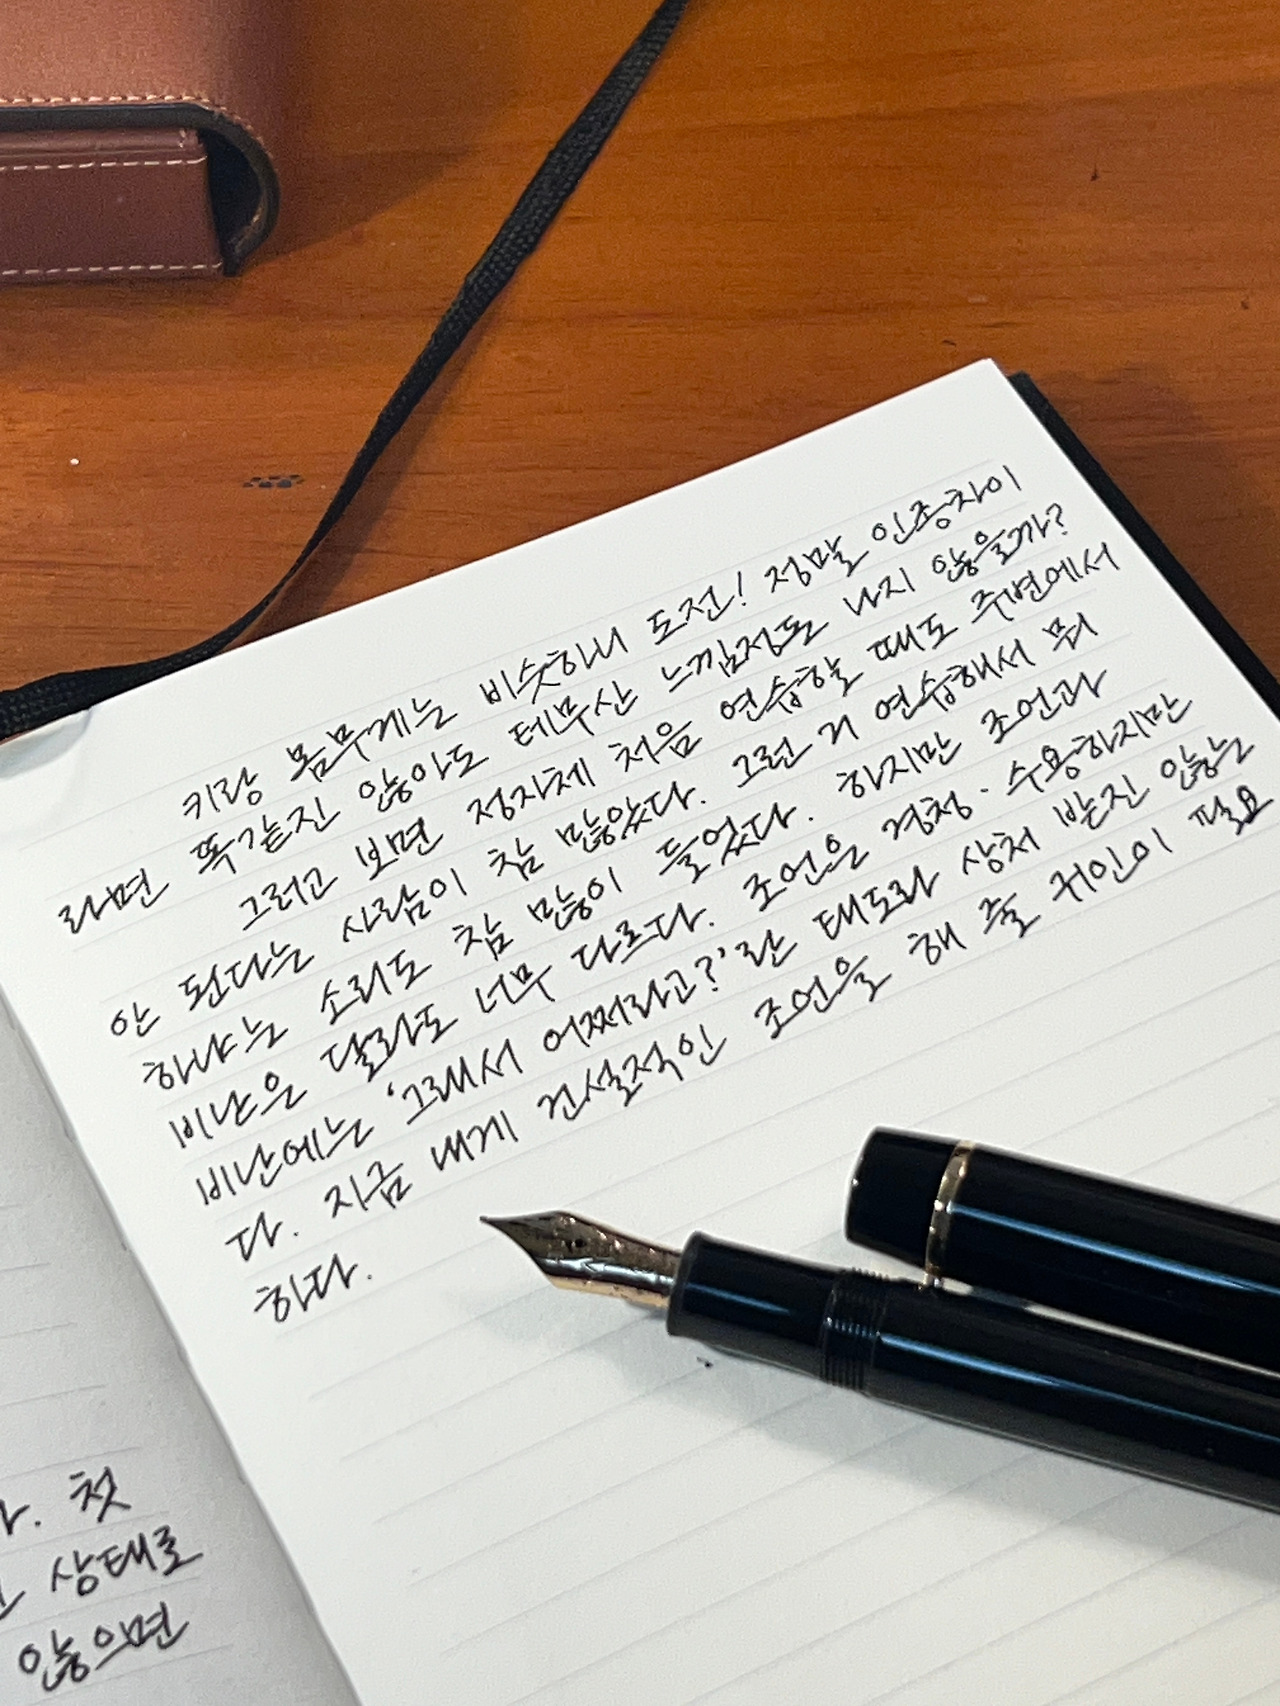 키랑 몸무게는 비슷하니 도전! 정말 인종차이
라면 똑같진 않아도 테무산 느낌정돈 나지 않을까?
그러고 보면 정자체 처음 연습할 때도 주변에서
안 된다는 사람이 참 많았다. 그런 거 연습해서 뭐
하냐는 소리도 참 많이 들었다. 하지만 조언과
비난은 달라도 너무 다르다. 조언은 경청·수용하지만
비난에는 '그래서 어쩌라고?'란 태도라 상처 받진 않는
다. 지금 내게 건설적인 조언을 해 줄 귀인이 필요
하다.
. 첫
상태로
않으면